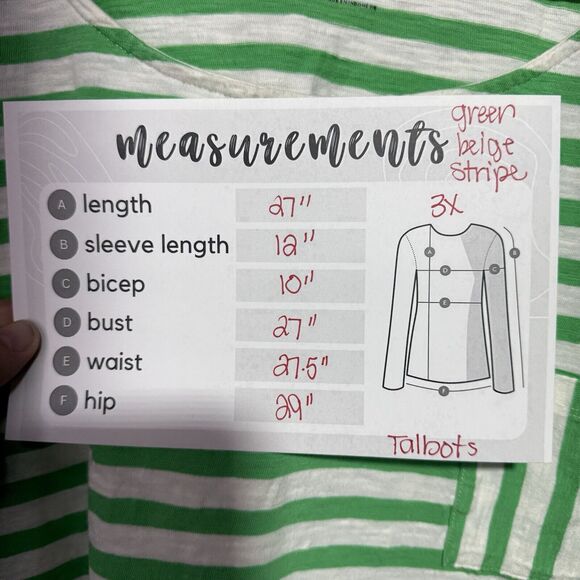 measurements
green
beige
stripe
A length 27"
3X
B sleeve length 12"
C bicep 10"
D bust 27"
E waist 27.5"
F hip 29"
A
B
D
C
E
F
Talbots